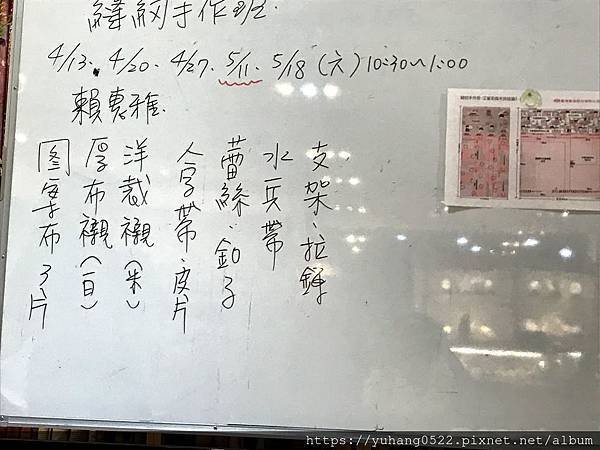 縫紉手作班
4/13、4/20、4/27、5/11、5/18(六)10:30~1:00
賴惠雅
支架、拉鍊
水兵帶
蕾絲、釦子
人字帶、皮片
洋裁襯(米)
厚布襯(白)
图案布3片
https://yuhang0522.pixnet.net/album